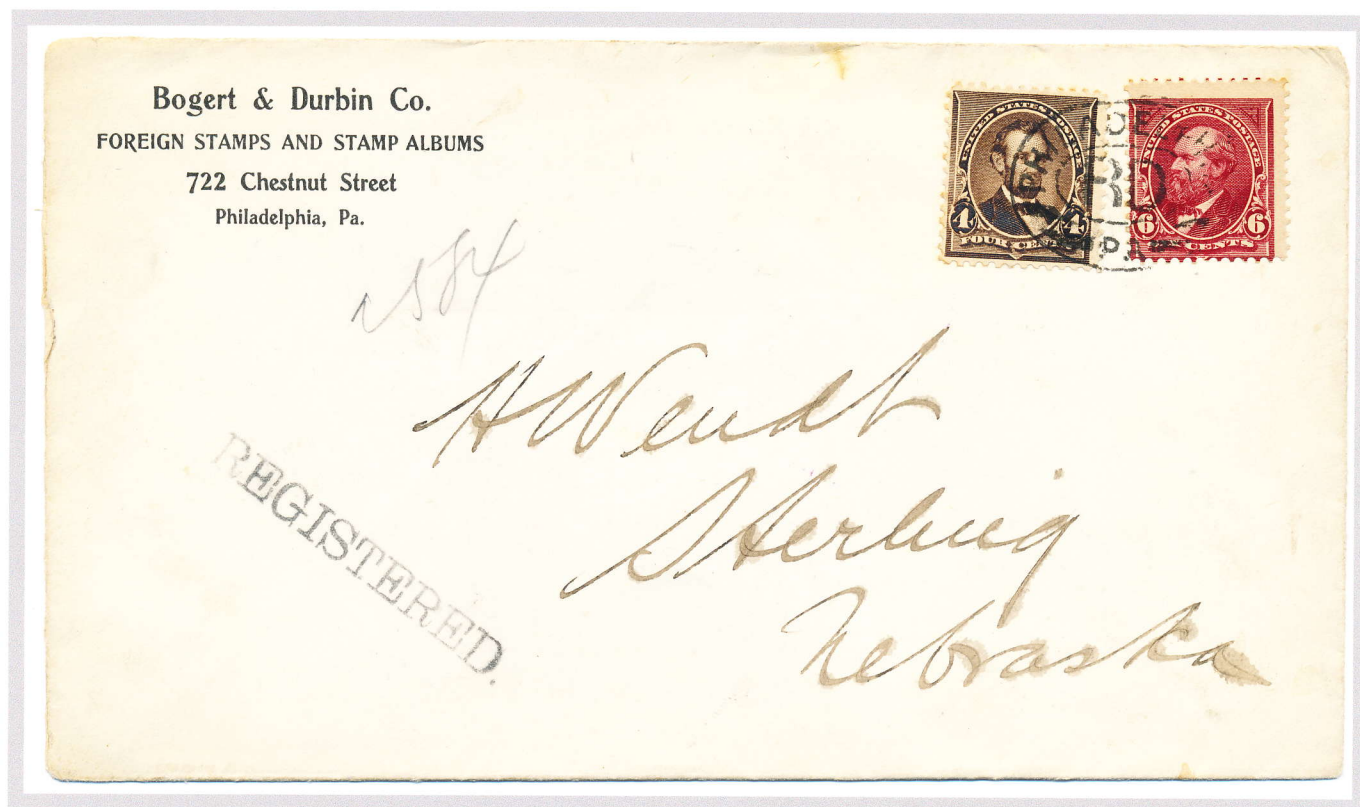 Bogert & Durbin Co.
FOREIGN STAMPS AND STAMP ALBUMS
722 Chestnut Street
Philadelphia, Pa.
UNITED STATES POSTAGE
4 4
FOUR CENTS
UNITED STATES POSTAGE
6 6
SIX CENTS
R
PA
584
H Wendt
Sterling
Nebraska
REGISTERED.